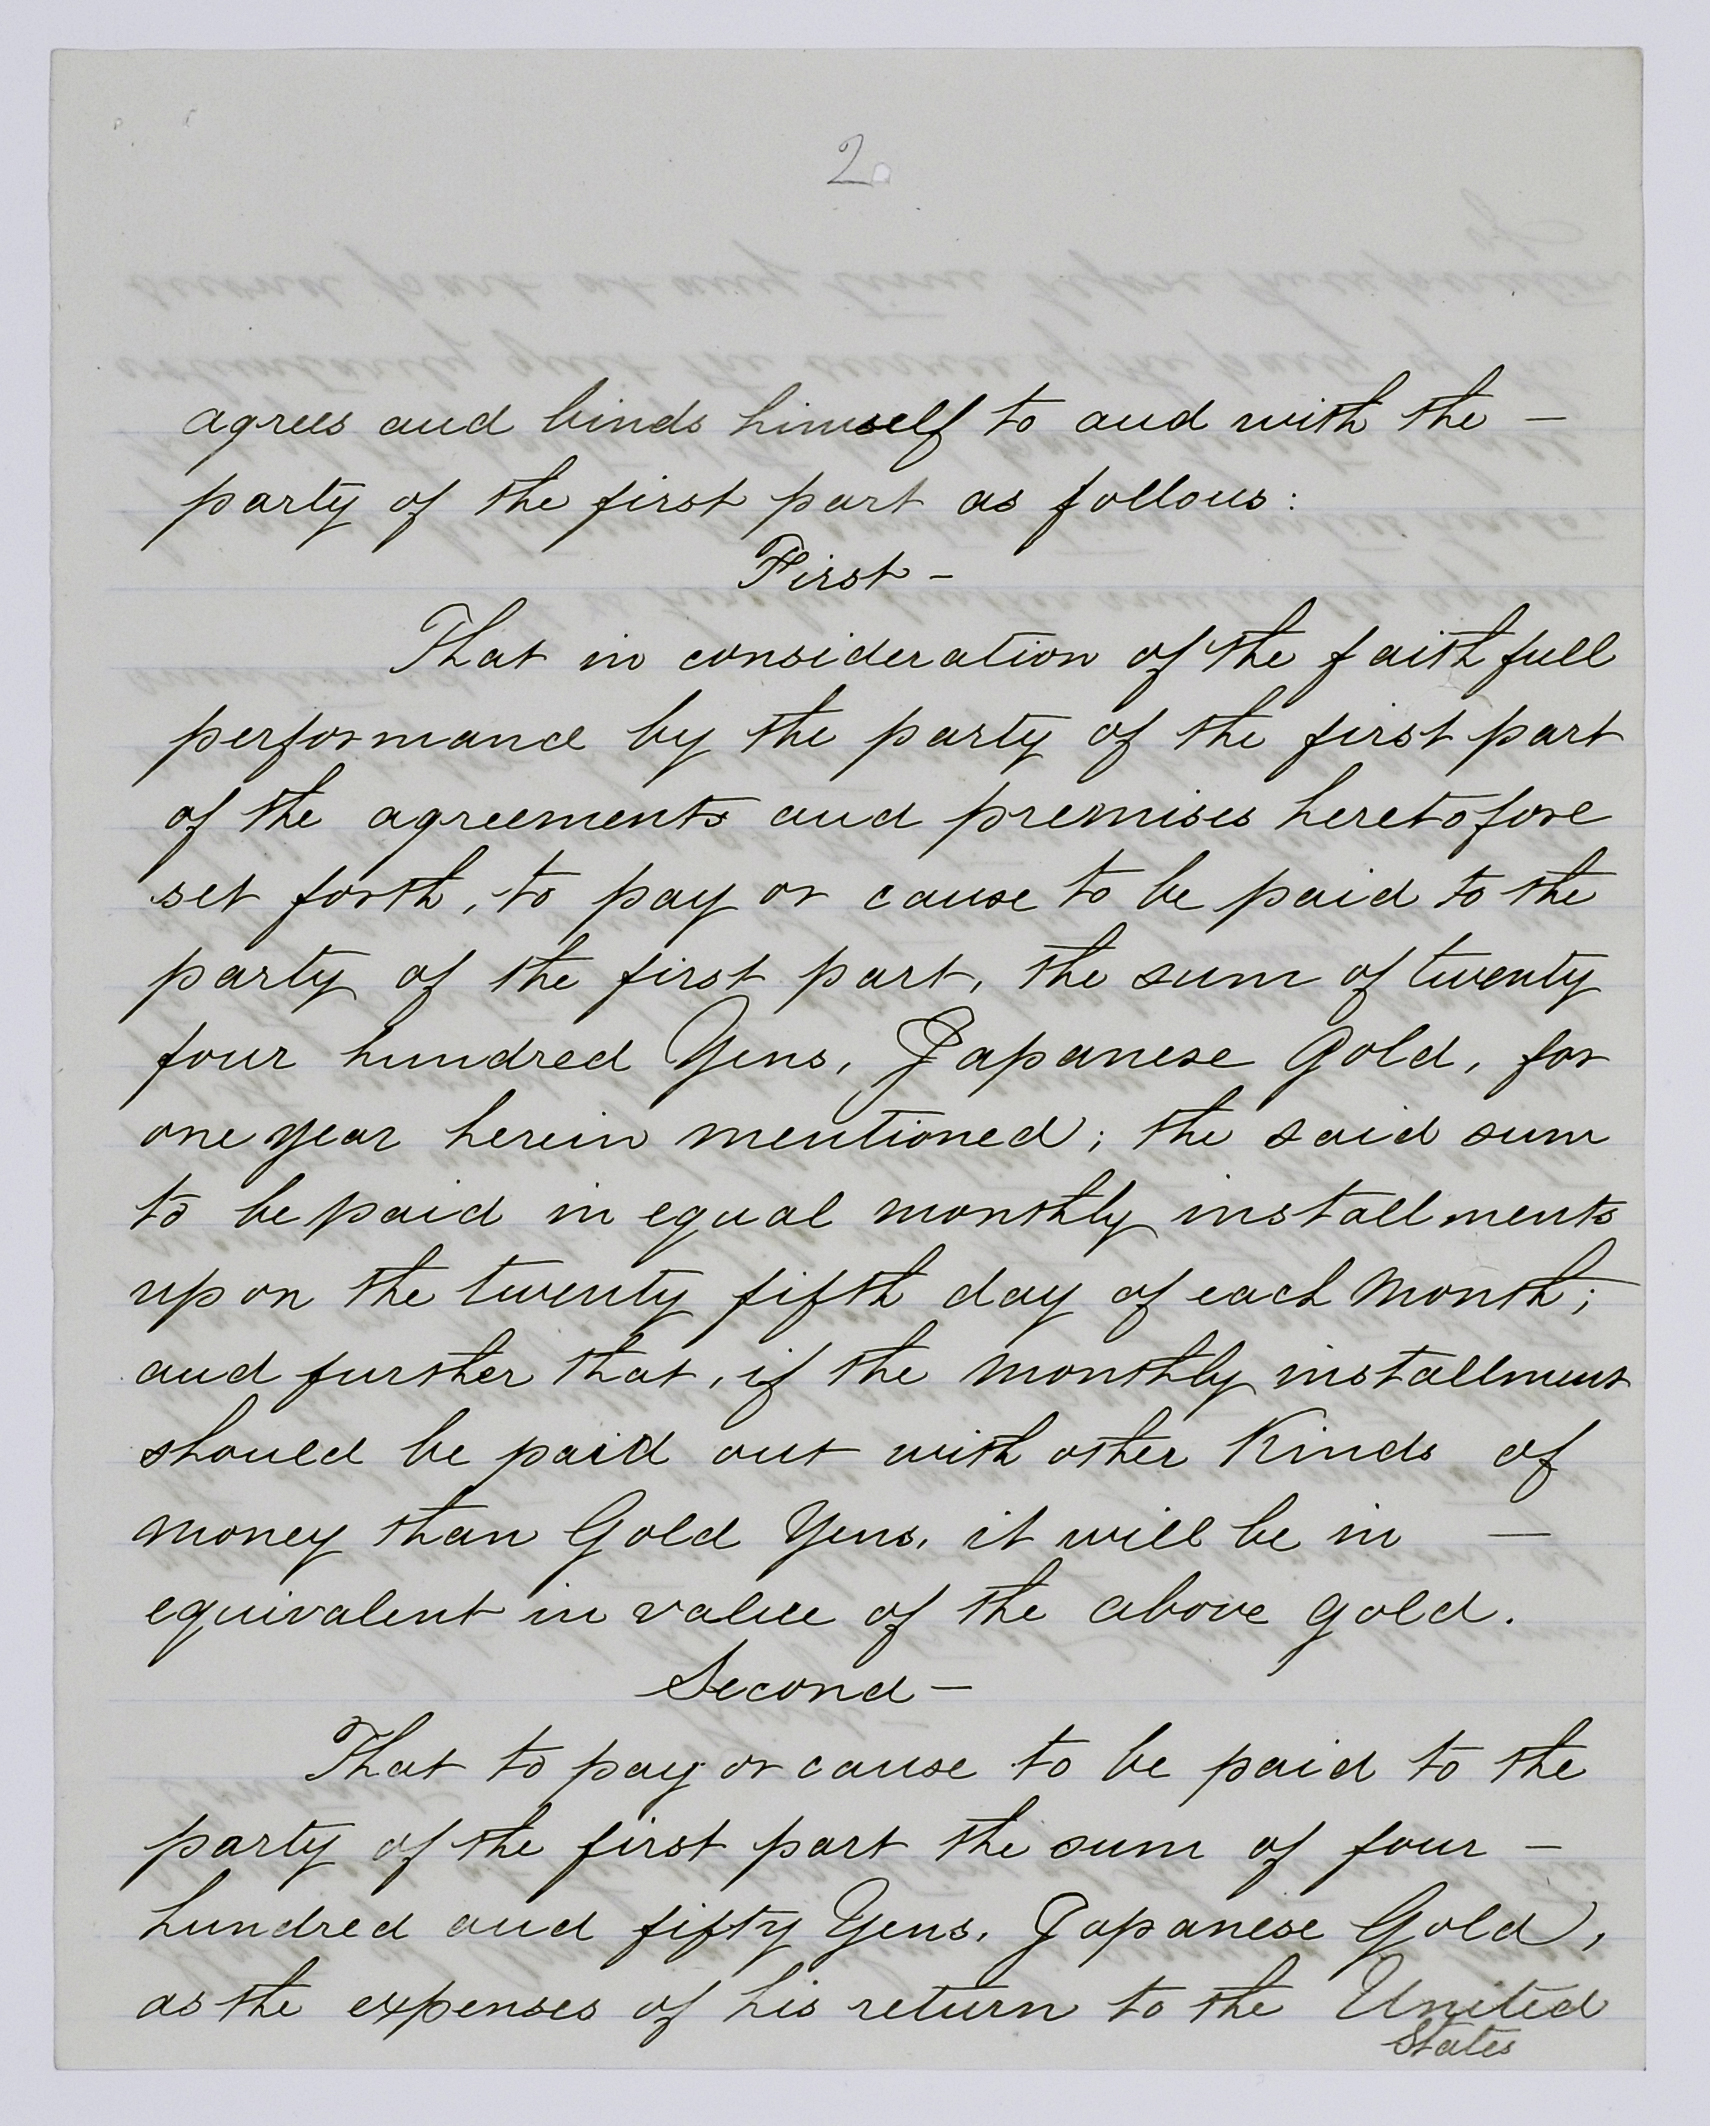 2.
agrees and binds himself to and with the —
party of the first part as follows:
First —
That in consideration of the faithfull
performance by the party of the first part
of the agreements and premises heretofore
set forth, to pay or cause to be paid to the
party of the first part, the sum of twenty
four hundred Yens, Japanese Gold, for
one year herein mentioned; the said sum
to be paid in equal monthly installments
upon the twenty fifth day of each month;
and further that, if the monthly installment
should be paid out with other Kinds of
money than Gold Yens, it will be in —
equivalent in value of the above gold.
Second —
That to pay or cause to be paid to the
party of the first part the sum of four —
hundred and fifty Yens, Japanese Gold,
as the expenses of his return to the United
States